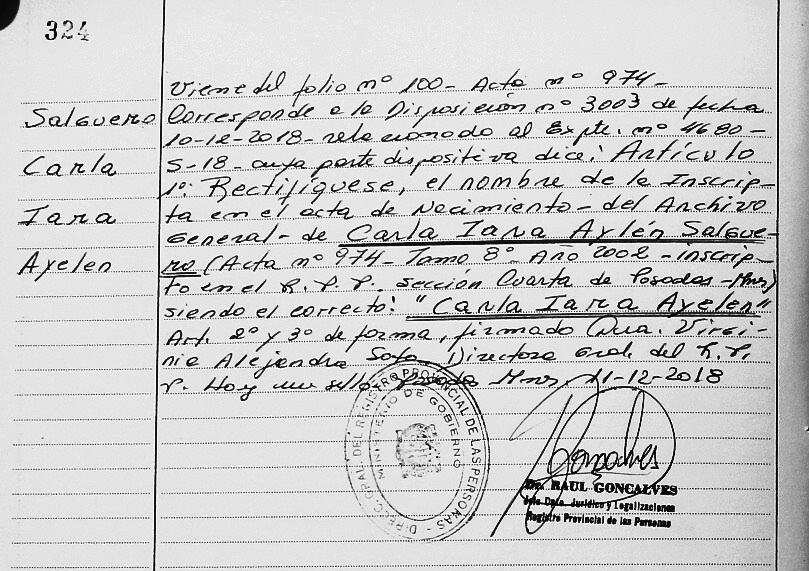 324
Viene del folio nº 100- Acta nº 974-
Salguero
Corresponde a la Disposición nº 3003 de fecha
10-12-2018- relacionado al Expte. nº 4680-
Carla
5-18- cuya parte dispositiva dice: Artículo
1º: Rectifíquese, el nombre de la Inscrip-
Iara
ta en el acta de Nacimiento- del Archivo
General- de Carla Iara Aylén Salgue-
Ayelen
ro (Acta nº 974- Tomo 8º- Año 2002- inscrip-
to en el R. P. P. sección Cuarta de Posadas- Mnes)
siendo el correcto: "Carla Iara Ayelen"
Art. 2º y 3º de forma, firmado Dra. Virgi-
nia Alejandra Directora Gral. del R. P.
P. Hay un sello. Posadas Mnes, 11-12-2018
DIREC. GRAL. DEL REGISTRO PROVINCIAL DE LAS PERSONAS -
MINISTERIO DE GOBIERNO
Goncalves
Dr. RAUL GONCALVES
Jefe Dpto. Jurídico y Legalizaciones
Registro Provincial de las Personas